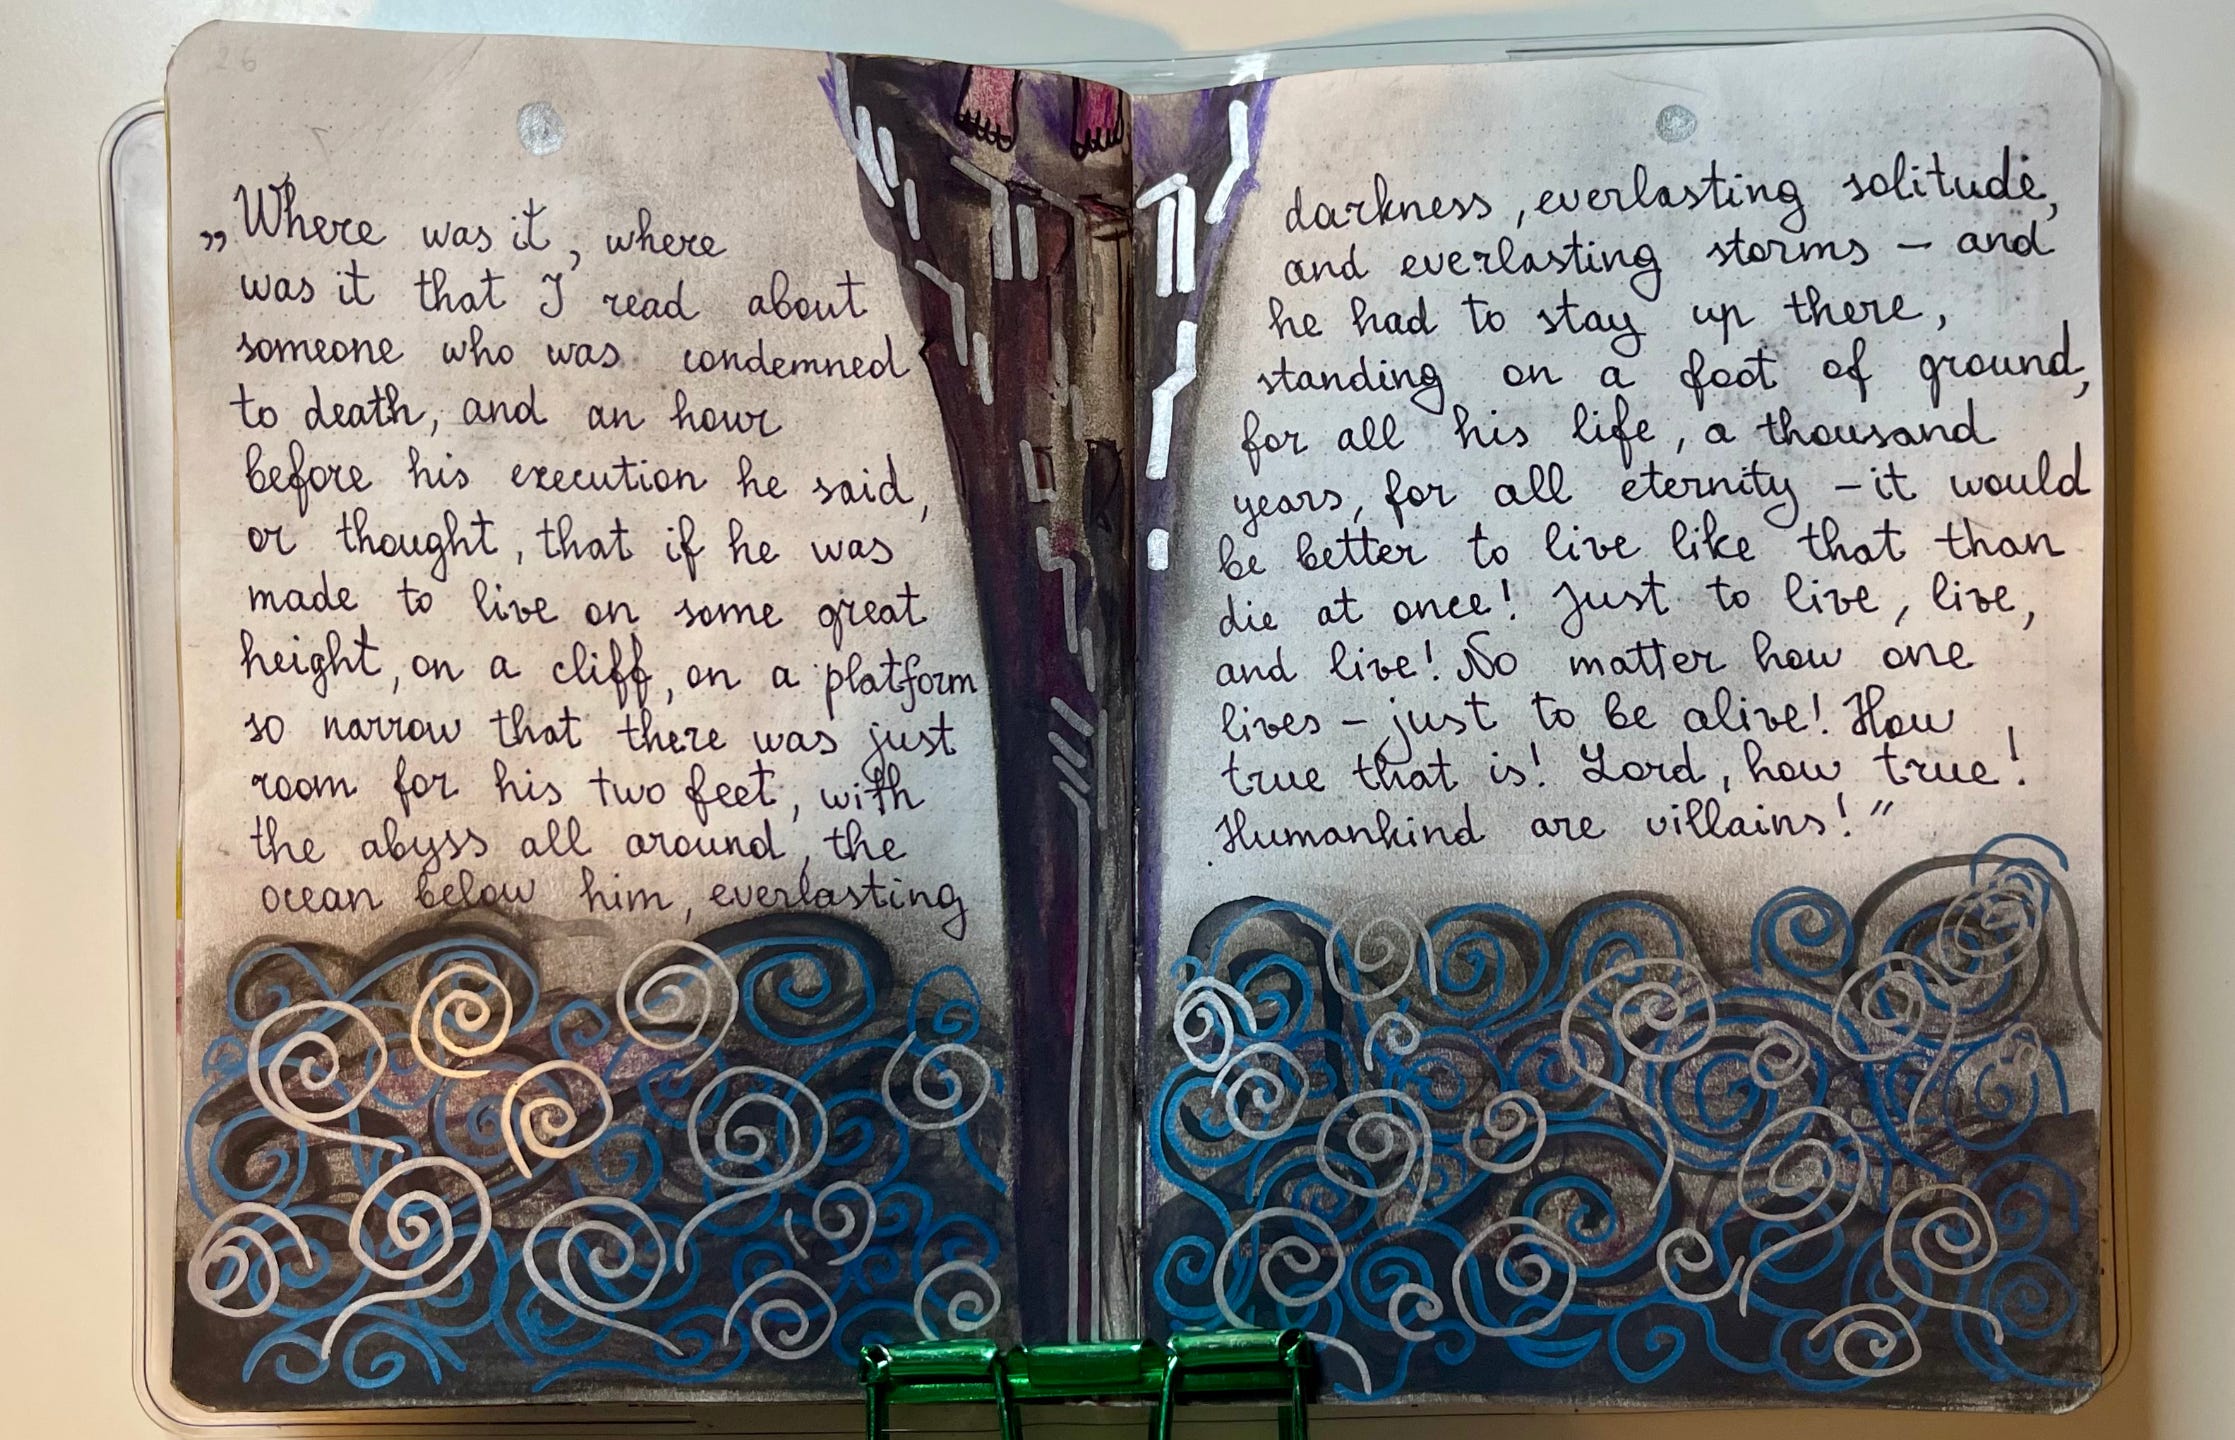 26
„Where was it, where
was it that I read about
someone who was condemned
to death, and an hour
before his execution he said,
or thought, that if he was
made to live on some great
height, on a cliff, on a platform
so narrow that there was just
room for his two feet, with
the abyss all around, the
ocean below him, everlasting
darkness, everlasting solitude,
and everlasting storms – and
he had to stay up there,
standing on a foot of ground,
for all his life, a thousand
years, for all eternity – it would
be better to live like that than
die at once! Just to live, live,
and live! No matter how one
lives – just to be alive! How
true that is! Lord, how true!
Humankind are villains!"